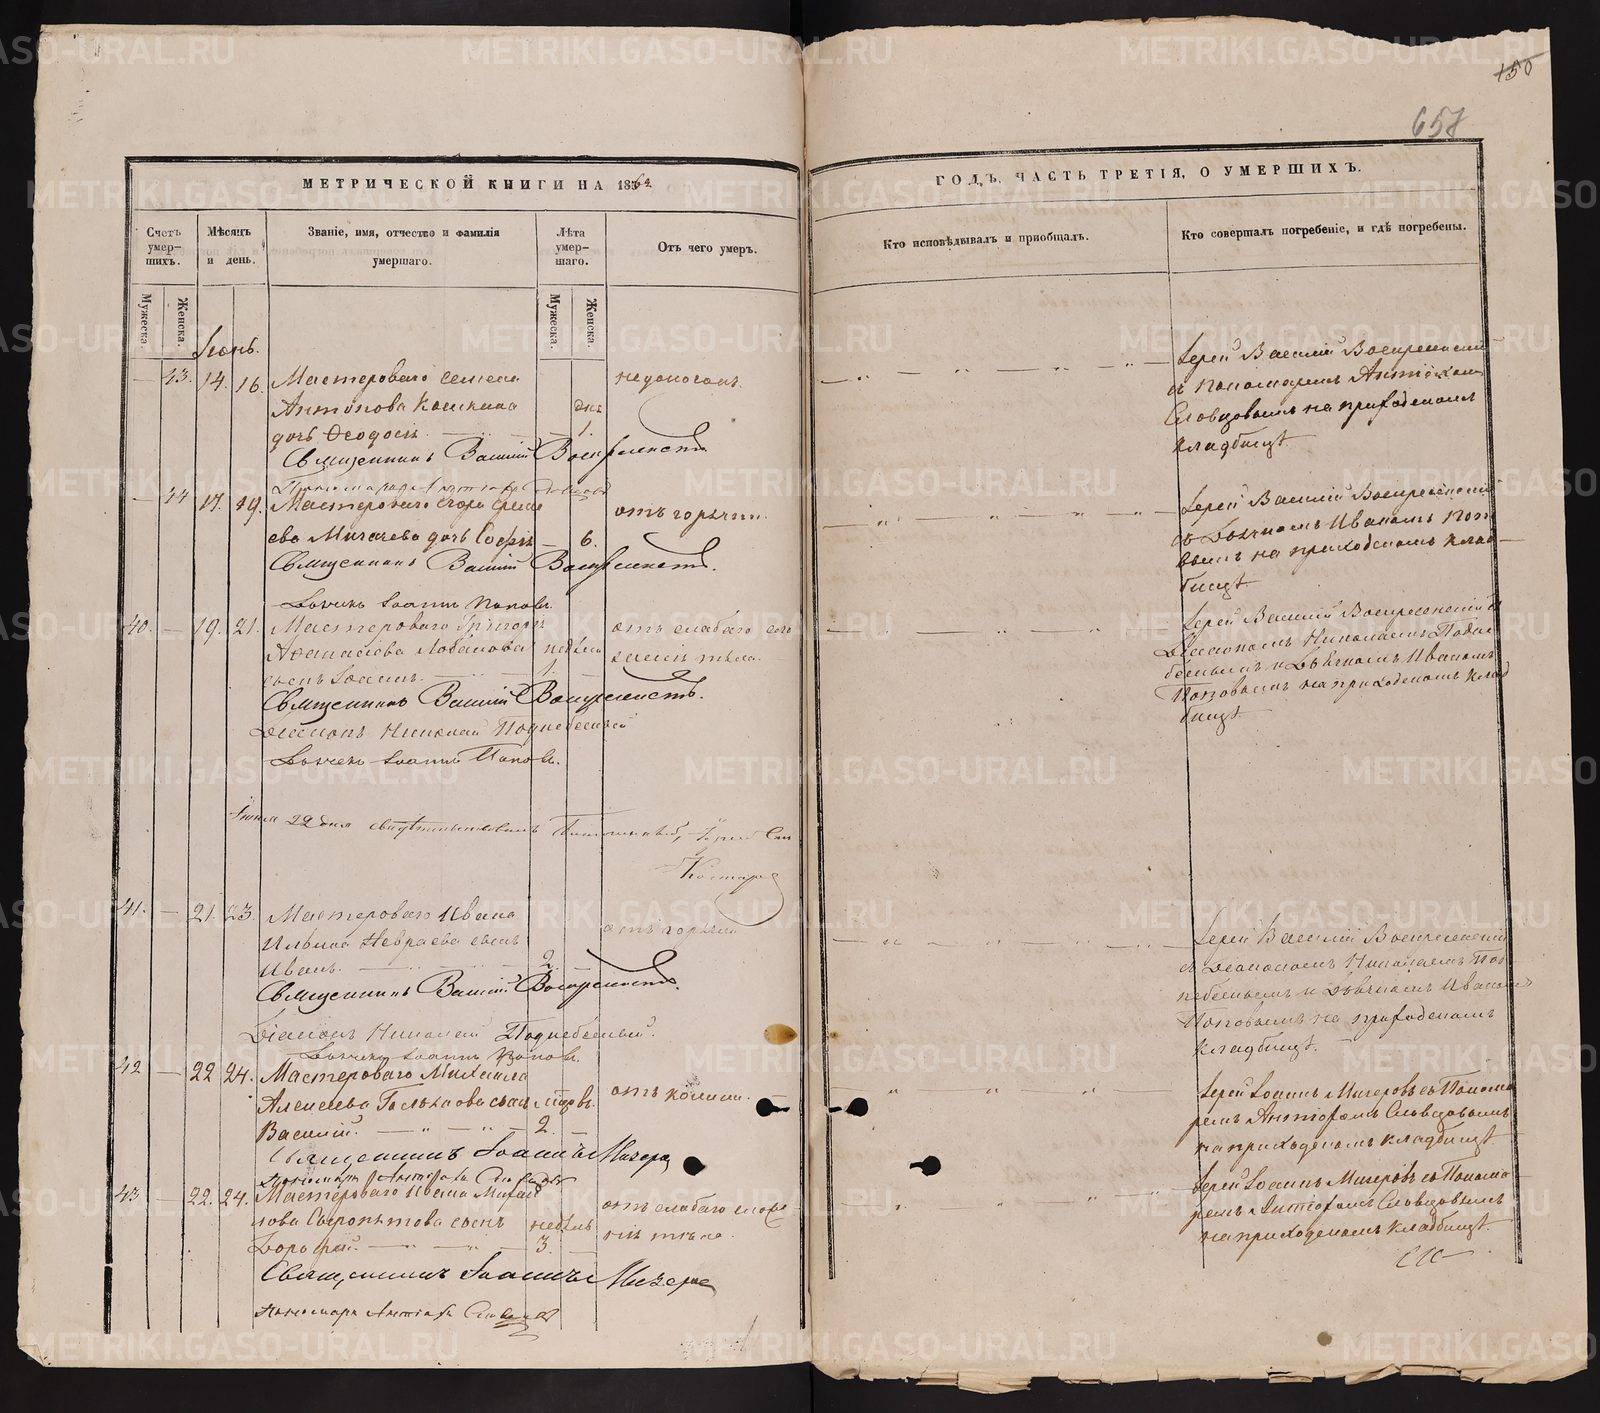 150
657
МЕТРИЧЕСКОЙ КНИГИ НА 1862
ГОДЪ, ЧАСТЬ ТРЕТІЯ, О УМЕРШИХЪ.
Счетъ умер-шихъ.
Мѣсяцъ и день.
Званіе, имя, отчество и фамилія умершаго.
Лѣта умер-шаго.
Отъ чего умеръ.
Кто исповѣдывалъ и пріобщалъ.
Кто совершалъ погребеніе, и гдѣ погребены.
Мужеска.
Женска.
Мужеска.
Женска.
Іюнь.
43. 14. 16. Мастероваго Семена
Антонова Кошкина днь
дочь Ѳеодосія 1.
недоносокъ.
Священникъ Василій Воскресенскій
Іерей Василій Воскресенскій
съ Пономаремъ Антіохомъ
Словцовымъ на приходскомъ
кладбищѣ
44 17. 19. Мастероваго Егора
ева Мигачева дочь Софія 6.
отъ горячки.
Священникъ Василій Воскресенскій.
Дьячекъ Іоаннъ Поповъ.
Іерей Василій Воскресенскій
съ Дьячкомъ Иваномъ Попо
вымъ на приходскомъ клад
бищѣ
40. 19. 21. Мастероваго Григорія
Аѳанасіева Лобанова недѣли
сынъ Іоаннъ. 1
отъ слабаго сло
женія тѣла.
Священникъ Василій Воскресенскій.
Діаконъ Николай Поднебесный
Дьячекъ Іоаннъ Поповъ.
Іерей Василій Воскресенскій съ
Діакономъ Николаемъ Подне
беснымъ и Дьячкомъ Иваномъ
Поповымъ на приходскомъ клад
бищѣ
Іюня 22 дня свидѣтельствовалъ
41. 21. 23. Мастероваго Ивана
Ильина Невраева сынъ
Иванъ. 2
отъ горячки
Священникъ Василій Воскресенскій.
Діаконъ Николай Поднебесный.
Дьячекъ Іоаннъ Поповъ.
Іерей Василій Воскресенскій
съ Діакономъ Николаемъ Под
небеснымъ и Дьячкомъ Иваномъ
Поповымъ на приходскомъ
кладбищѣ.
42 22 24. Мастероваго Михаила
Алексѣева сынъ
Василій. 2.
Священникъ Іоаннъ
Пономарь Антіохъ Словцовъ
Іерей Іоаннъ съ Понома
ремъ Антіохомъ Словцовымъ
на приходскомъ кладбищѣ
43. 22. 24. Мастероваго Ивана Михай
лова сынъ недѣль
Дорофей. 3.
отъ слабаго сложе
нія тѣла.
Священникъ Іоаннъ
Пономарь Антіохъ Словцовъ
Іерей Іоаннъ съ Понома
ремъ Антіохомъ Словцовымъ
на приходскомъ кладбищѣ.
METRIKI.GASO-URAL.RU